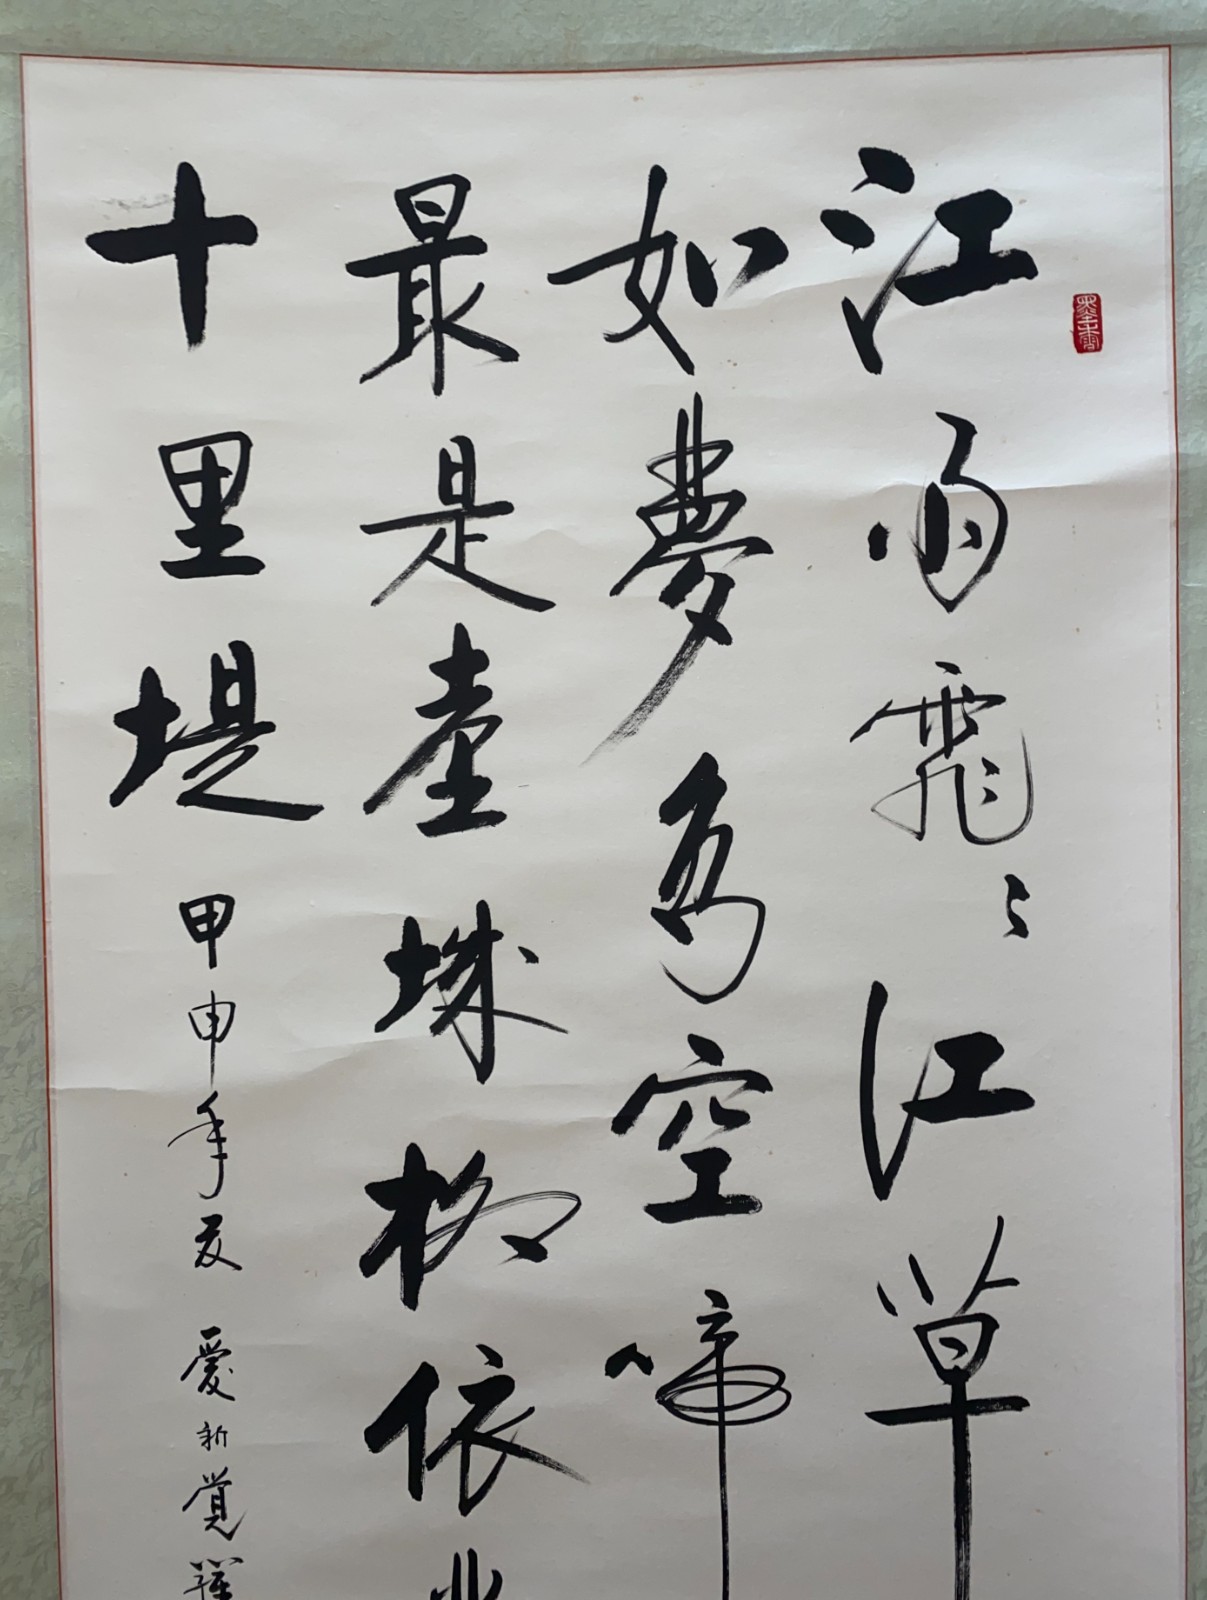 江雨霏々江草
如夢鳥空啼
最是臺城柳依
十里堤
甲申年夏 愛新覺羅